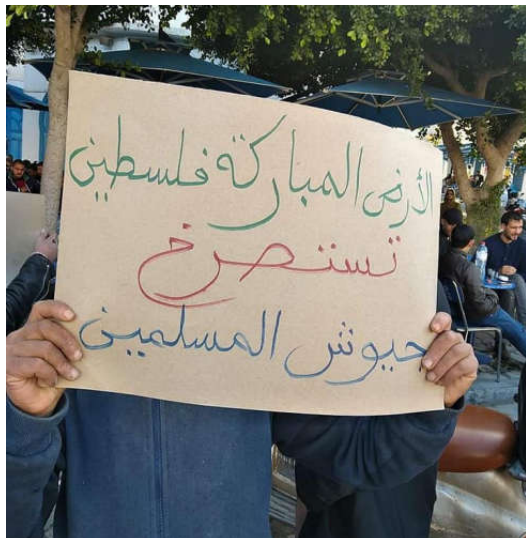 الأرض المباركة فلسطين
تستصرخ
جيوش المسلمين